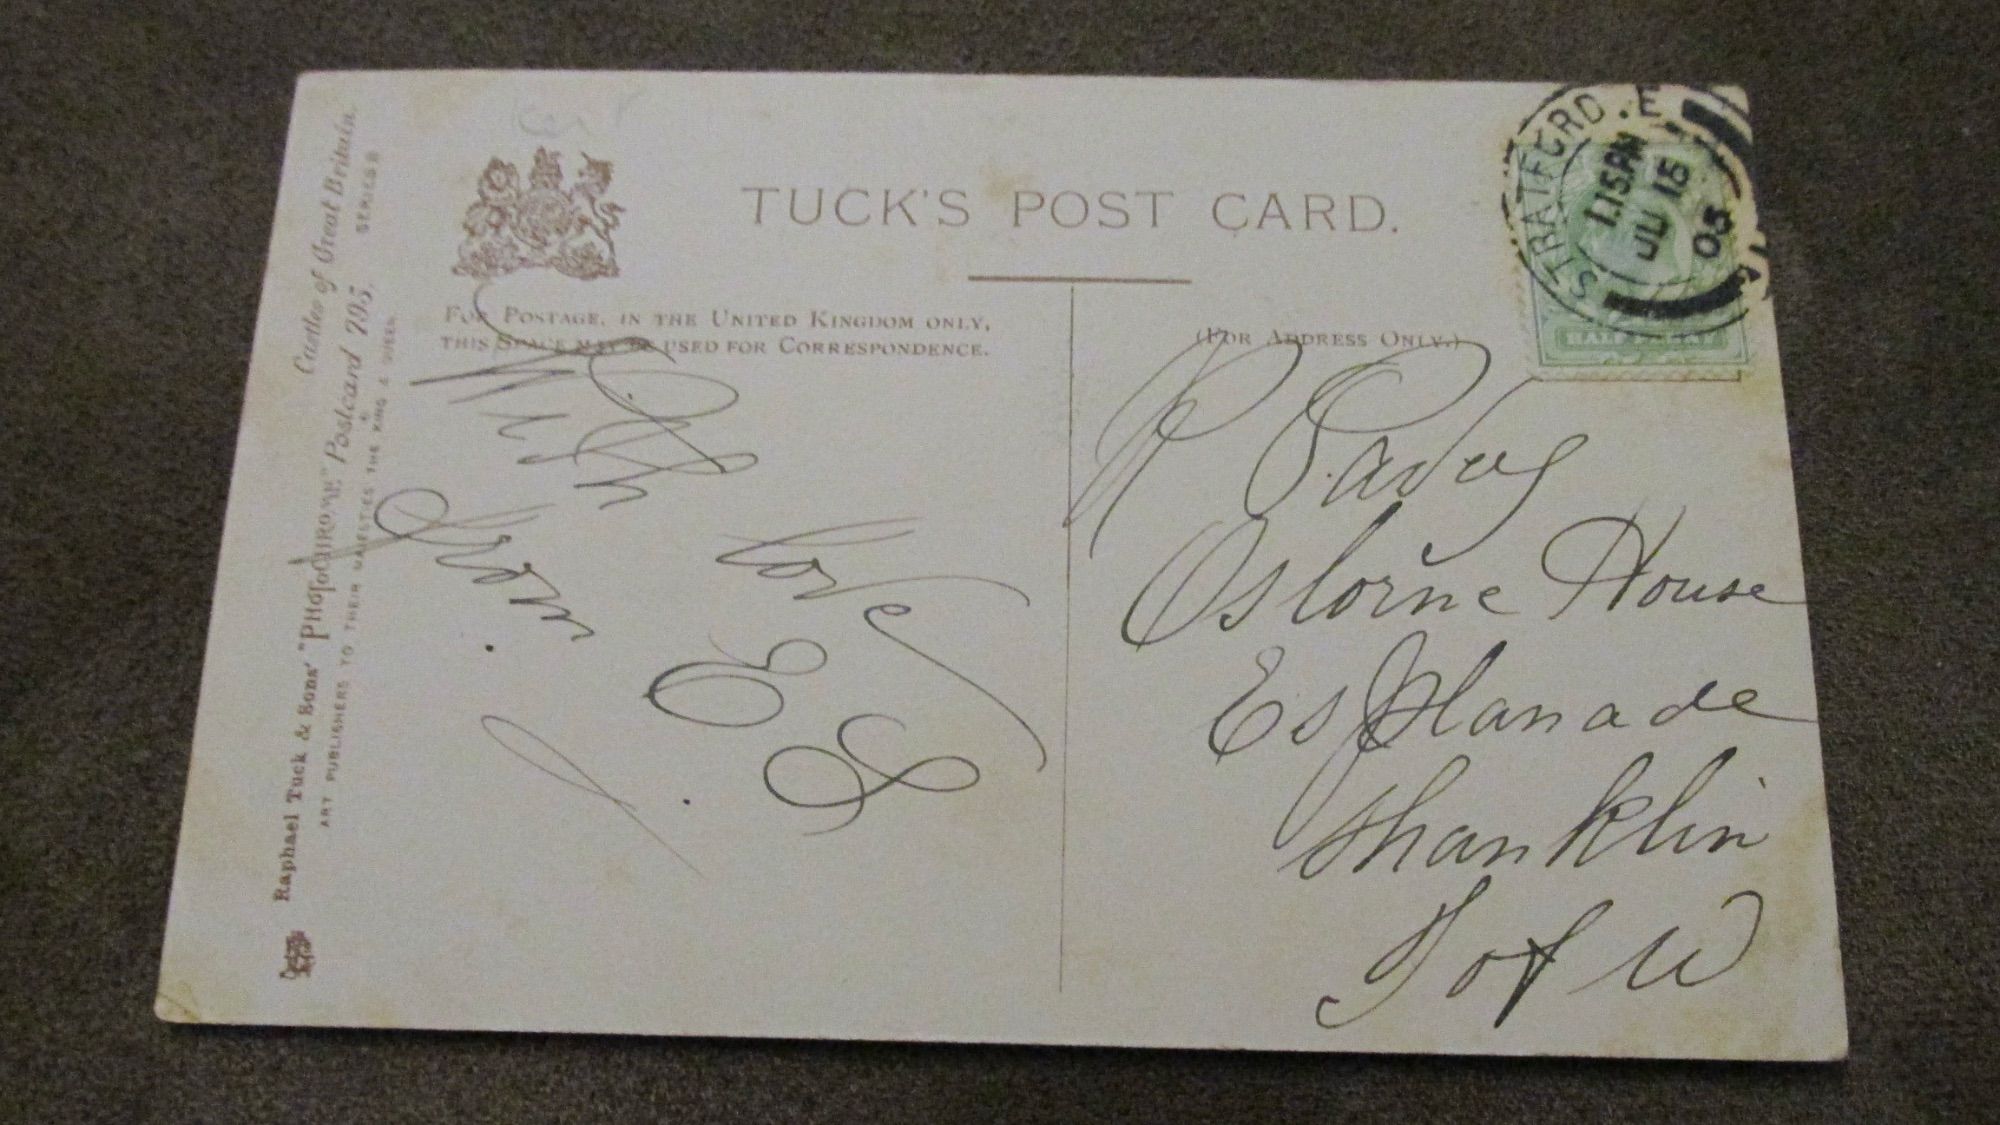 TUCK'S POST CARD.
FOR POSTAGE, IN THE UNITED KINGDOM ONLY,
THIS SPACE MAY BE USED FOR CORRESPONDENCE.
(FOR ADDRESS ONLY.)
STRATFORD. E
1.15PM
JU 18
05
HALFPENNY
With love
from E S
R
Osborne House
Esplanade
Shanklin
I of W
Castles of Great Britain.
SERIES
Raphael Tuck & Sons' "PHOTOCHROME" Postcard 795.
ART PUBLISHERS TO THEIR MAJESTIES THE KING & QUEEN.